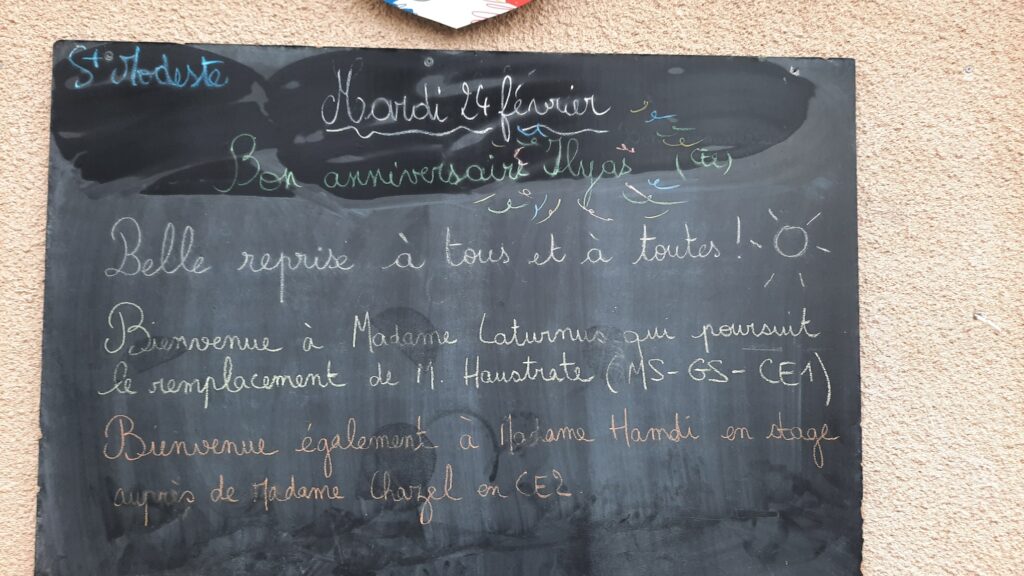 St Modeste
Mardi 24 février
Bon anniversaire Ilyas
Belle reprise à tous et à toutes !
Bienvenue à Madame Laturnus qui poursuit
le remplacement de M. Haustrate (MS-GS-CE1)
Bienvenue également à Madame Hamdi en stage
auprès de Madame Chazel en CE2.